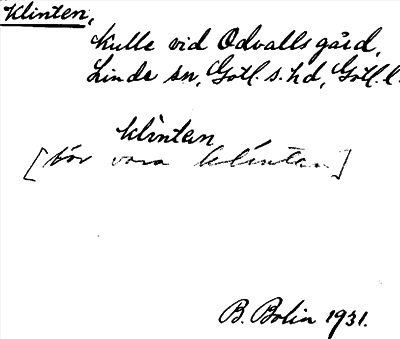 Klinten,
kulle vid Odvalls gård,
Linde sn, Gotl. s. hd, Gotl. l.
klintan
[bör vara klíntan]
B. Bolin 1931.